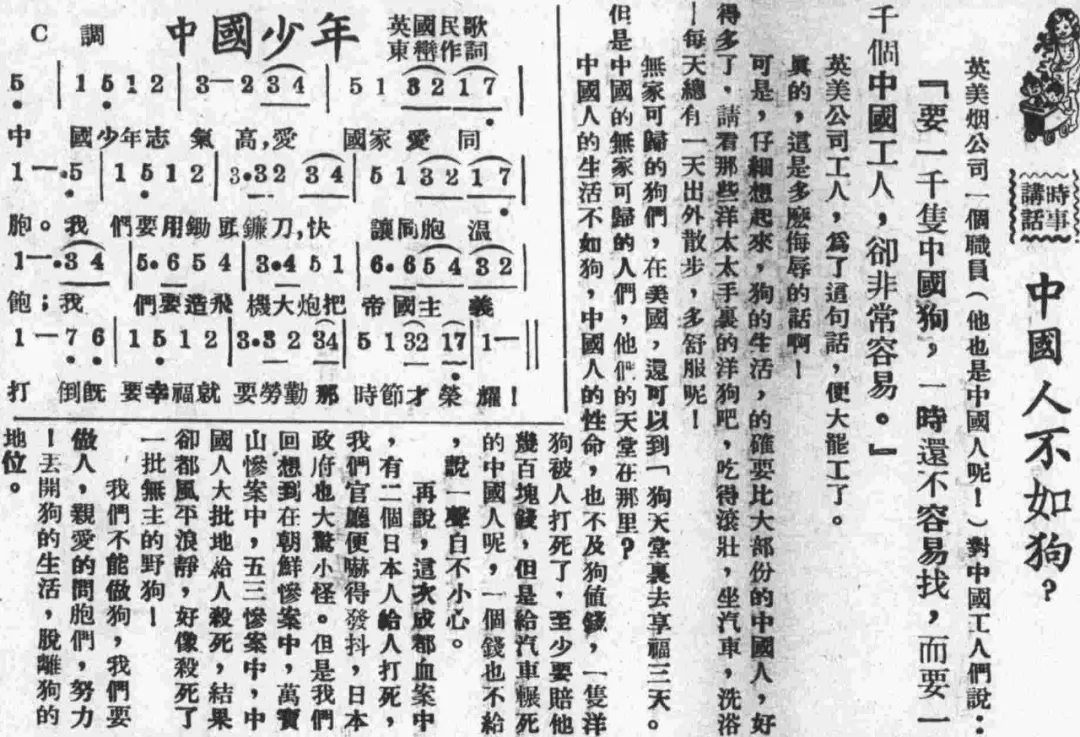 時事
講話
中國人不如狗?
英美烟公司一個職員(他也是中國人呢!)對中國工人們說:
『要一千隻中國狗,一時還不容易找,而要一
千個中國工人,卻非常容易。』
英美公司工人,爲了這句話,便大罷工了。
眞的,這是多麼侮辱的話啊!
可是,仔細想起來,狗的生活,的確要比大部份的中國人,好
得多了,請看那些洋太太手裏的洋狗吧,吃得滾壯,坐汽車,洗浴
!每天總有一天出外散步,多舒服呢!
無家可歸的狗們,在美國,還可以到「狗天堂裏去享福三天。
但是中國的無家可歸的人們,他們的天堂在那里?
中國人的生活不如狗,中國人的性命,也不及狗値錢,一隻洋
狗被人打死了,至少要賠他
幾百塊錢,但是給汽車輾死
的中國人呢,一個錢也不給
,說一聲自不小心。
再說,這次成都血案中
,有二個日本人給人打死,
我們官廳便嚇得發抖,日本
政府也大驚小怪。但是我們
回想到在朝鮮慘案中,萬寶
山慘案中,五三慘案中,中
國人大批地給人殺死,結果
卻都風平浪靜,好像殺死了
一批無主的野狗!
我們不能做狗,我們要
做人,親愛的問胞們,努力
!丟開狗的生活,脫離狗的
地位。
C 調 中國少年 英國民歌
東巒作詞
5 | 1 5 1 2 | 3—2 3 4 | 5 1 3 2 | 1 7 |
中 國少年志 氣 高,愛 國家愛 同
1—·5 | 1 5 1 2 | 3·32 3 4 | 5 1 3 2 | 1 7 |
胞。我 們要用鋤頭鐮刀,快 讓同胞 温
1—·3 4 | 5·6 5 4 | 3·4 5 1 | 6·6 5 4 | 3 2 |
飽;我 們要造飛 機大炮把 帝國主 義
1—7 6 | 1 5 1 2 | 3·3 2 34 | 5 1 32 | 17 | 1—‖
打 倒旣 要幸福就 要勞勤那 時節才 榮 耀!